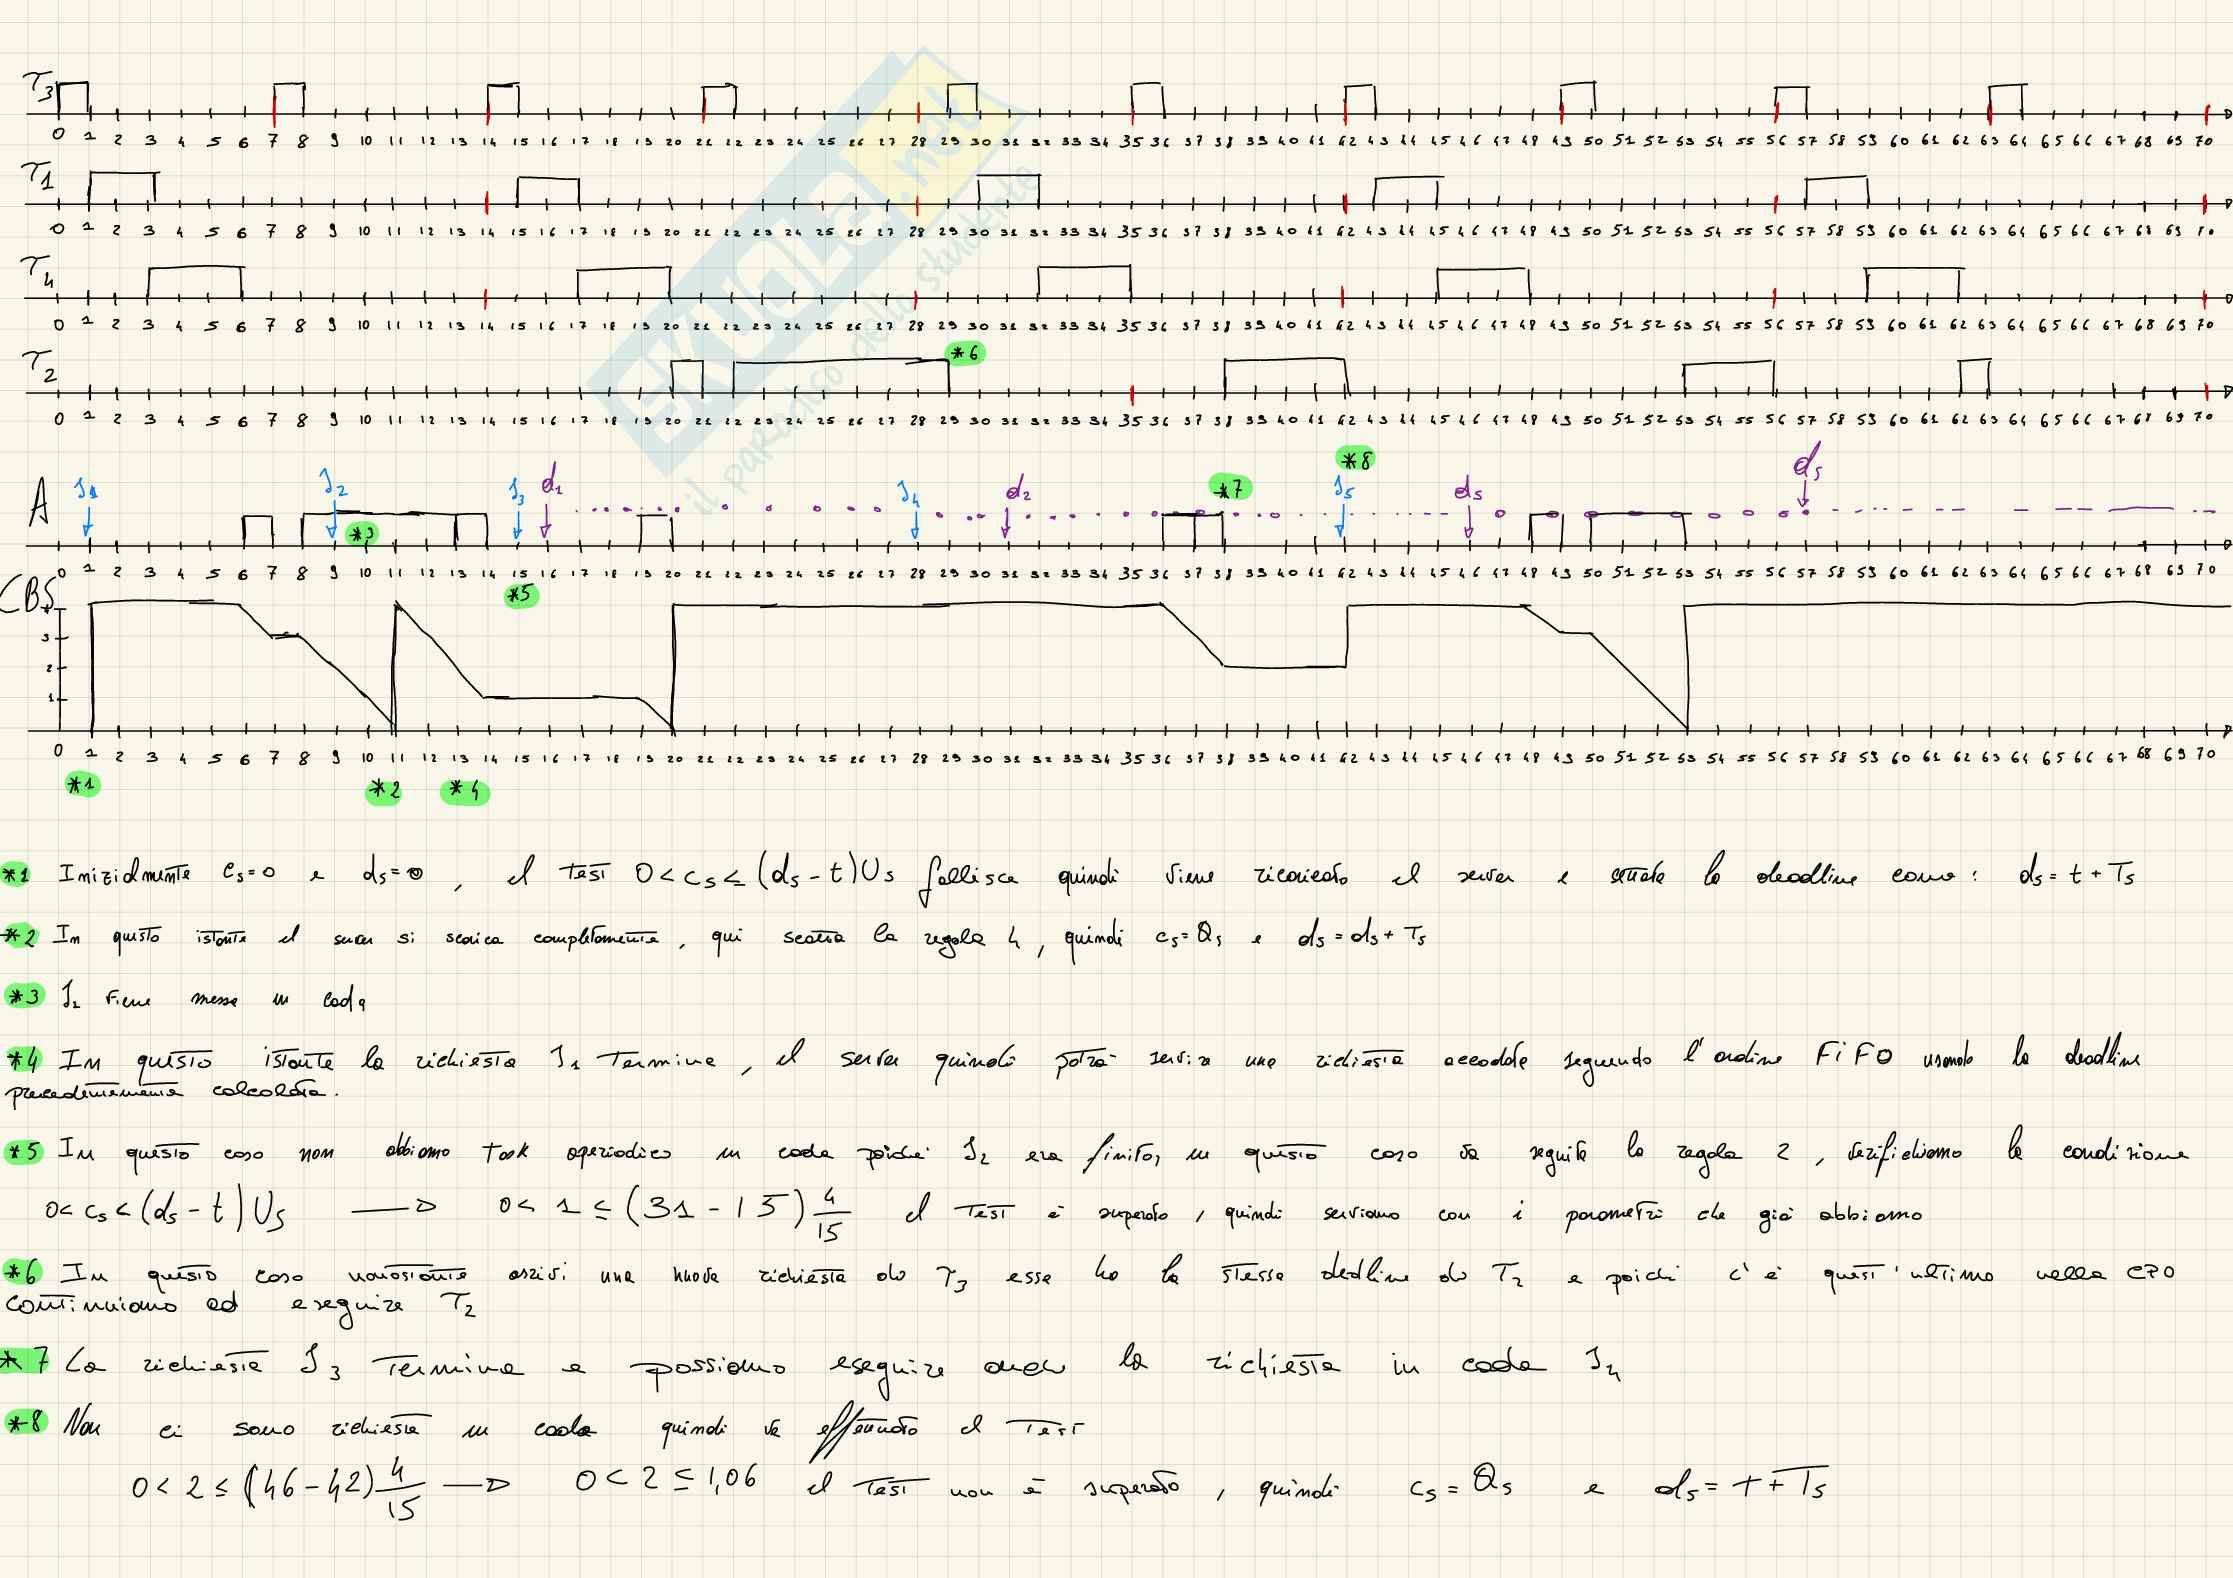 τ3
0 1 2 3 4 5 6 7 8 9 10 11 12 13 14 15 16 17 18 19 20 21 22 23 24 25 26 27 28 29 30 31 32 33 34 35 36 37 38 39 40 41 42 43 44 45 46 47 48 49 50 51 52 53 54 55 56 57 58 59 60 61 62 63 64 65 66 67 68 69 70
τ1
0 1 2 3 4 5 6 7 8 9 10 11 12 13 14 15 16 17 18 19 20 21 22 23 24 25 26 27 28 29 30 31 32 33 34 35 36 37 38 39 40 41 42 43 44 45 46 47 48 49 50 51 52 53 54 55 56 57 58 59 60 61 62 63 64 65 66 67 68 69 70
τ4
0 1 2 3 4 5 6 7 8 9 10 11 12 13 14 15 16 17 18 19 20 21 22 23 24 25 26 27 28 29 30 31 32 33 34 35 36 37 38 39 40 41 42 43 44 45 46 47 48 49 50 51 52 53 54 55 56 57 58 59 60 61 62 63 64 65 66 67 68 69 70
*6
τ2
0 1 2 3 4 5 6 7 8 9 10 11 12 13 14 15 16 17 18 19 20 21 22 23 24 25 26 27 28 29 30 31 32 33 34 35 36 37 38 39 40 41 42 43 44 45 46 47 48 49 50 51 52 53 54 55 56 57 58 59 60 61 62 63 64 65 66 67 68 69 70
SKUOLA.net
il paradiso dello studente
*8
A J1 J2 J3 d1 J4 d2 *7 J5 ds ds
*3
0 1 2 3 4 5 6 7 8 9 10 11 12 13 14 15 16 17 18 19 20 21 22 23 24 25 26 27 28 29 30 31 32 33 34 35 36 37 38 39 40 41 42 43 44 45 46 47 48 49 50 51 52 53 54 55 56 57 58 59 60 61 62 63 64 65 66 67 68 69 70
*5
CBS
3
2
1
0 1 2 3 4 5 6 7 8 9 10 11 12 13 14 15 16 17 18 19 20 21 22 23 24 25 26 27 28 29 30 31 32 33 34 35 36 37 38 39 40 41 42 43 44 45 46 47 48 49 50 51 52 53 54 55 56 57 58 59 60 61 62 63 64 65 66 67 68 69 70
*1 *2 *4
*1 Inizialmente cs=0 e ds=0, il test 0<cs≤(ds-t)Us fallisce quindi viene ricaricato il server e settata la deadline come: ds=t+Ts
*2 In questo istante il server si scarica completamente, qui scatta la regola 4, quindi cs=Qs e ds=ds+Ts
*3 J2 viene messa in coda
*4 In questo istante la richiesta J1 termina, il server quindi potrà servire una richiesta accodata seguendo l'ordine FIFO usando la deadline
precedentemente calcolata.
*5 In questo caso non abbiamo task aperiodico in coda poiché J2 era finito, in questo caso va seguita la regola 2, verifichiamo la condizione
0<cs<(ds-t)Us → 0<1≤(31-15)4/15 il test è superato, quindi serviamo con i parametri che già abbiamo
*6 In questo caso nonostante arrivi una nuova richiesta da τ3 essa ha la stessa dedline do τ2 e poichè c'è quest'ultimo nella CPU
continuiamo ad eseguire τ2
*7 La richiesta J3 termina e possiamo eseguire anche la richiesta in coda J4
*8 Non ci sono richieste in coda quindi va effettuato il test
0<2≤(46-42)4/15 → 0<2≤1,06 il test non è superato, quindi cs=Qs e ds=t+Ts